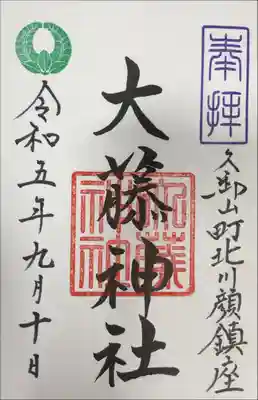 奉拝
久御山町北川顔鎮座
大藤神社
令和五年九月十日